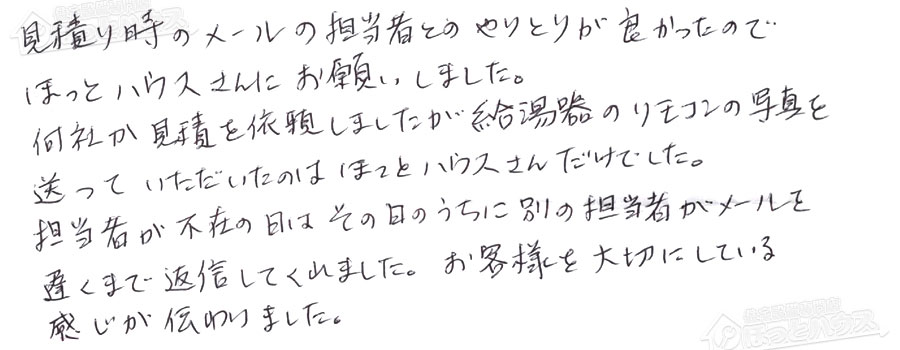 見積り時のメールの担当者とのやりとりが良かったので
ほっとハウスさんにお願いしました。
何社か見積を依頼しましたが給湯器のリモコンの写真を
送っていただいたのはほっとハウスさんだけでした。
担当者が不在の日はその日のうちに別の担当者がメールを
遅くまで返信してくれました。お客様を大切にしている
感じが伝わりました。
ほっとハウス